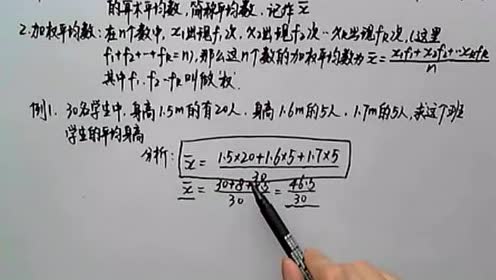 的算术平均数,简称平均数.记作x̄
2.加权平均数:在n个数中,x₁出现f₁次,x₂出现f₂次…xₖ出现fₖ次,(这里
f₁+f₂+…+fₖ=n),那么这n个数的加权平均数为x̄=(x₁f₁+x₂f₂+…xₖfₖ)/n
其中f₁.f₂…fₖ叫做权.
例1.30名学生中.身高1.5m的有20人.身高1.6m的5人.1.7m的5人,求这个班
学生的平均身高
分析: x̄=(1.5×20+1.6×5+1.7×5)/30
x̄=(30+8+8.5)/30=46.5/30